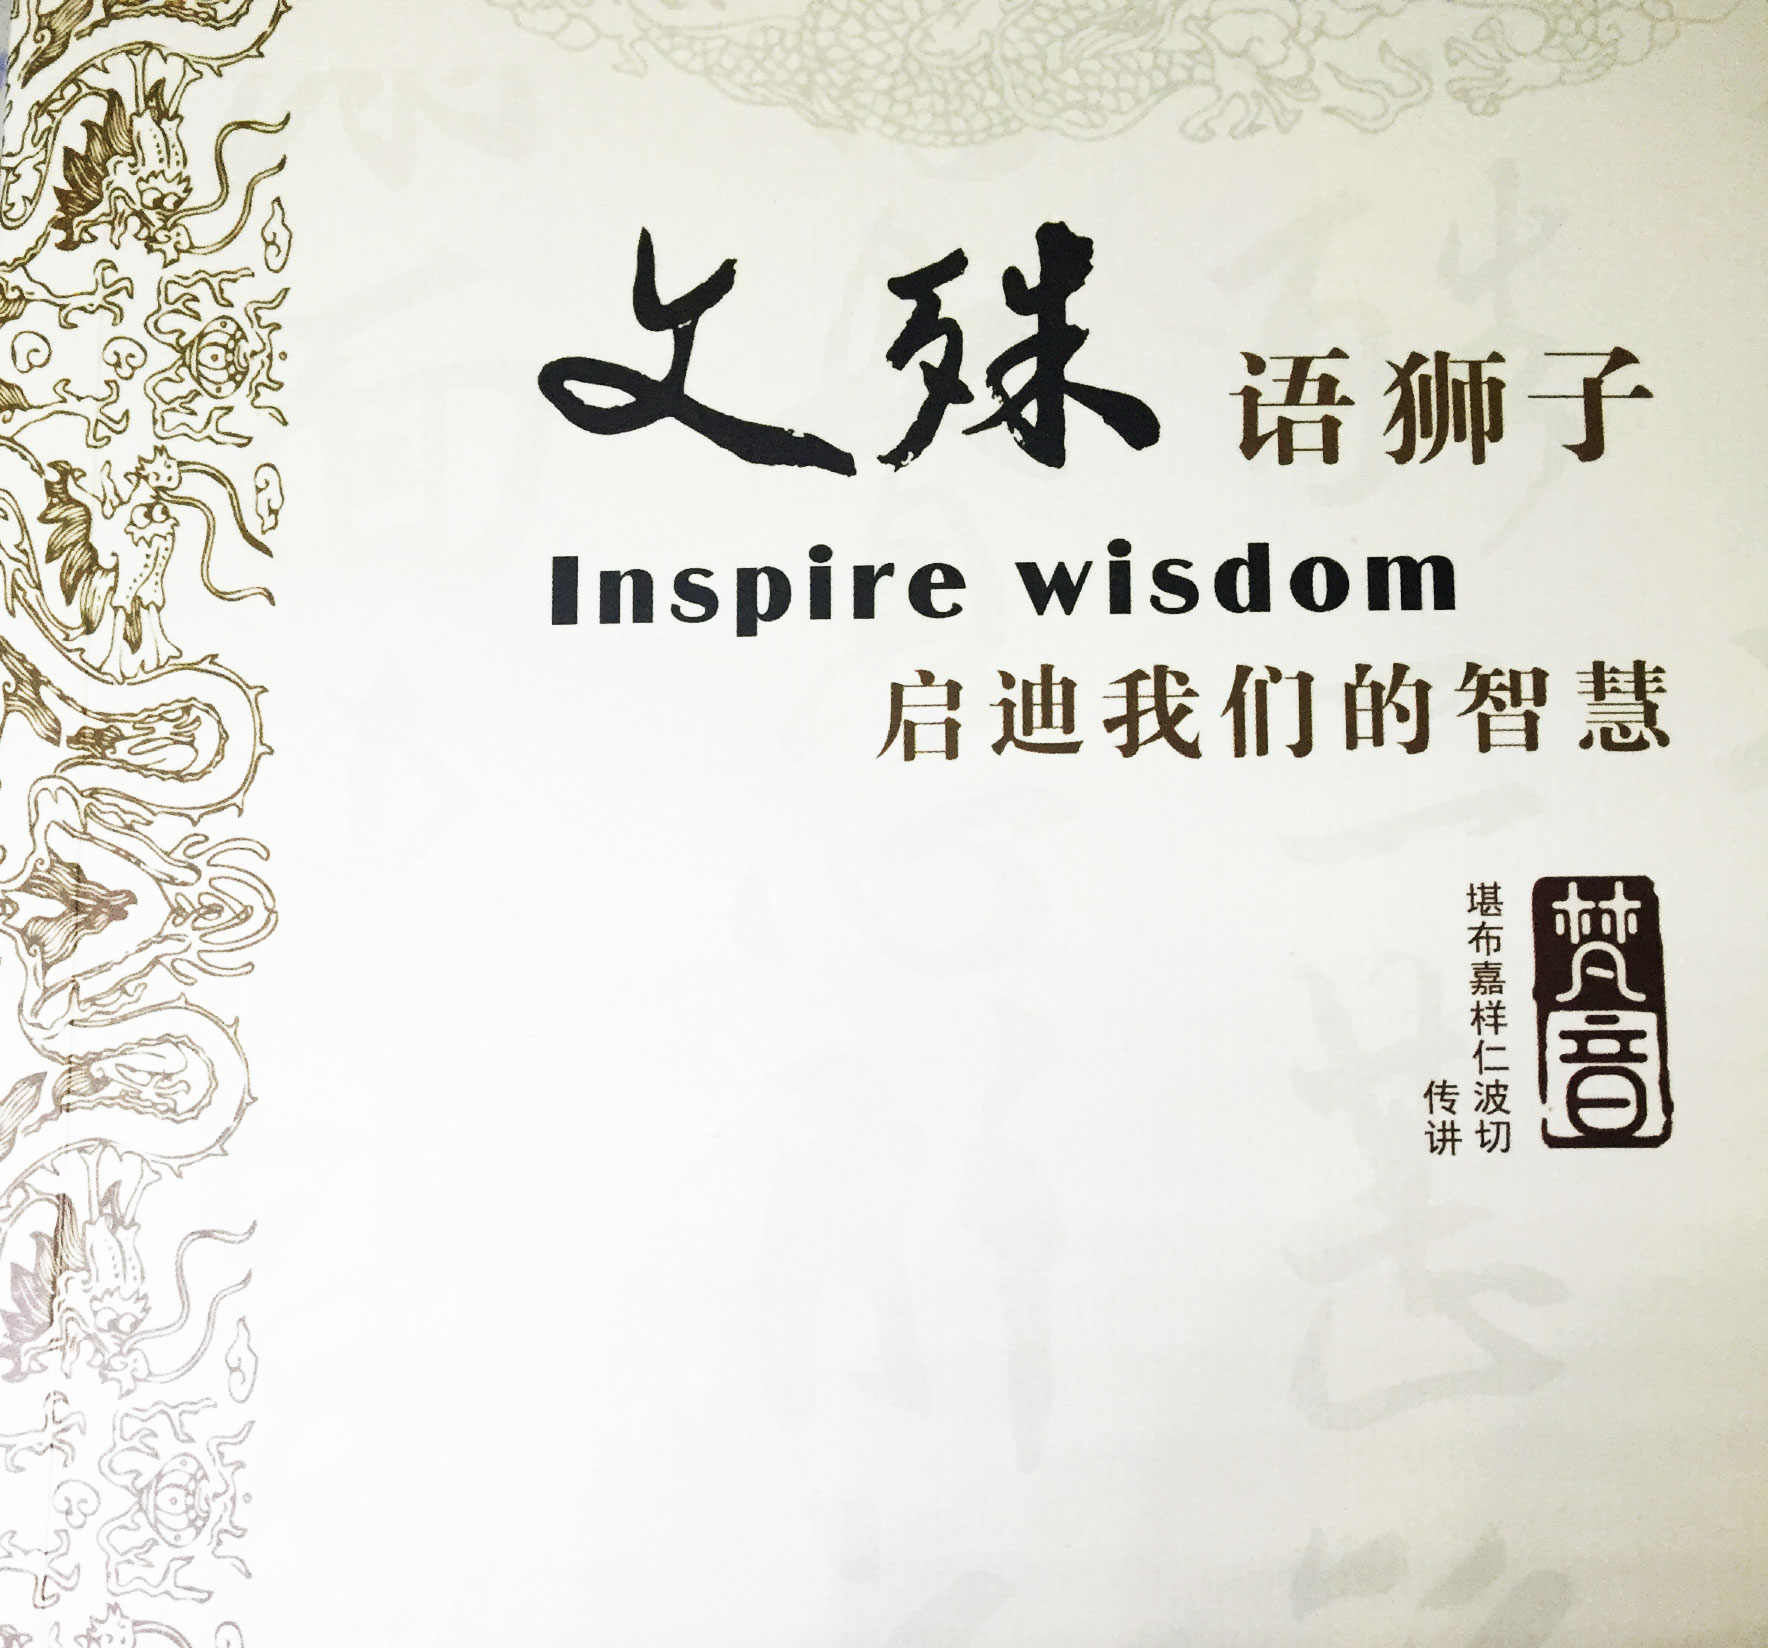 文殊 语狮子
Inspire wisdom
启迪我们的智慧
梵音
堪布嘉样仁波切
传讲